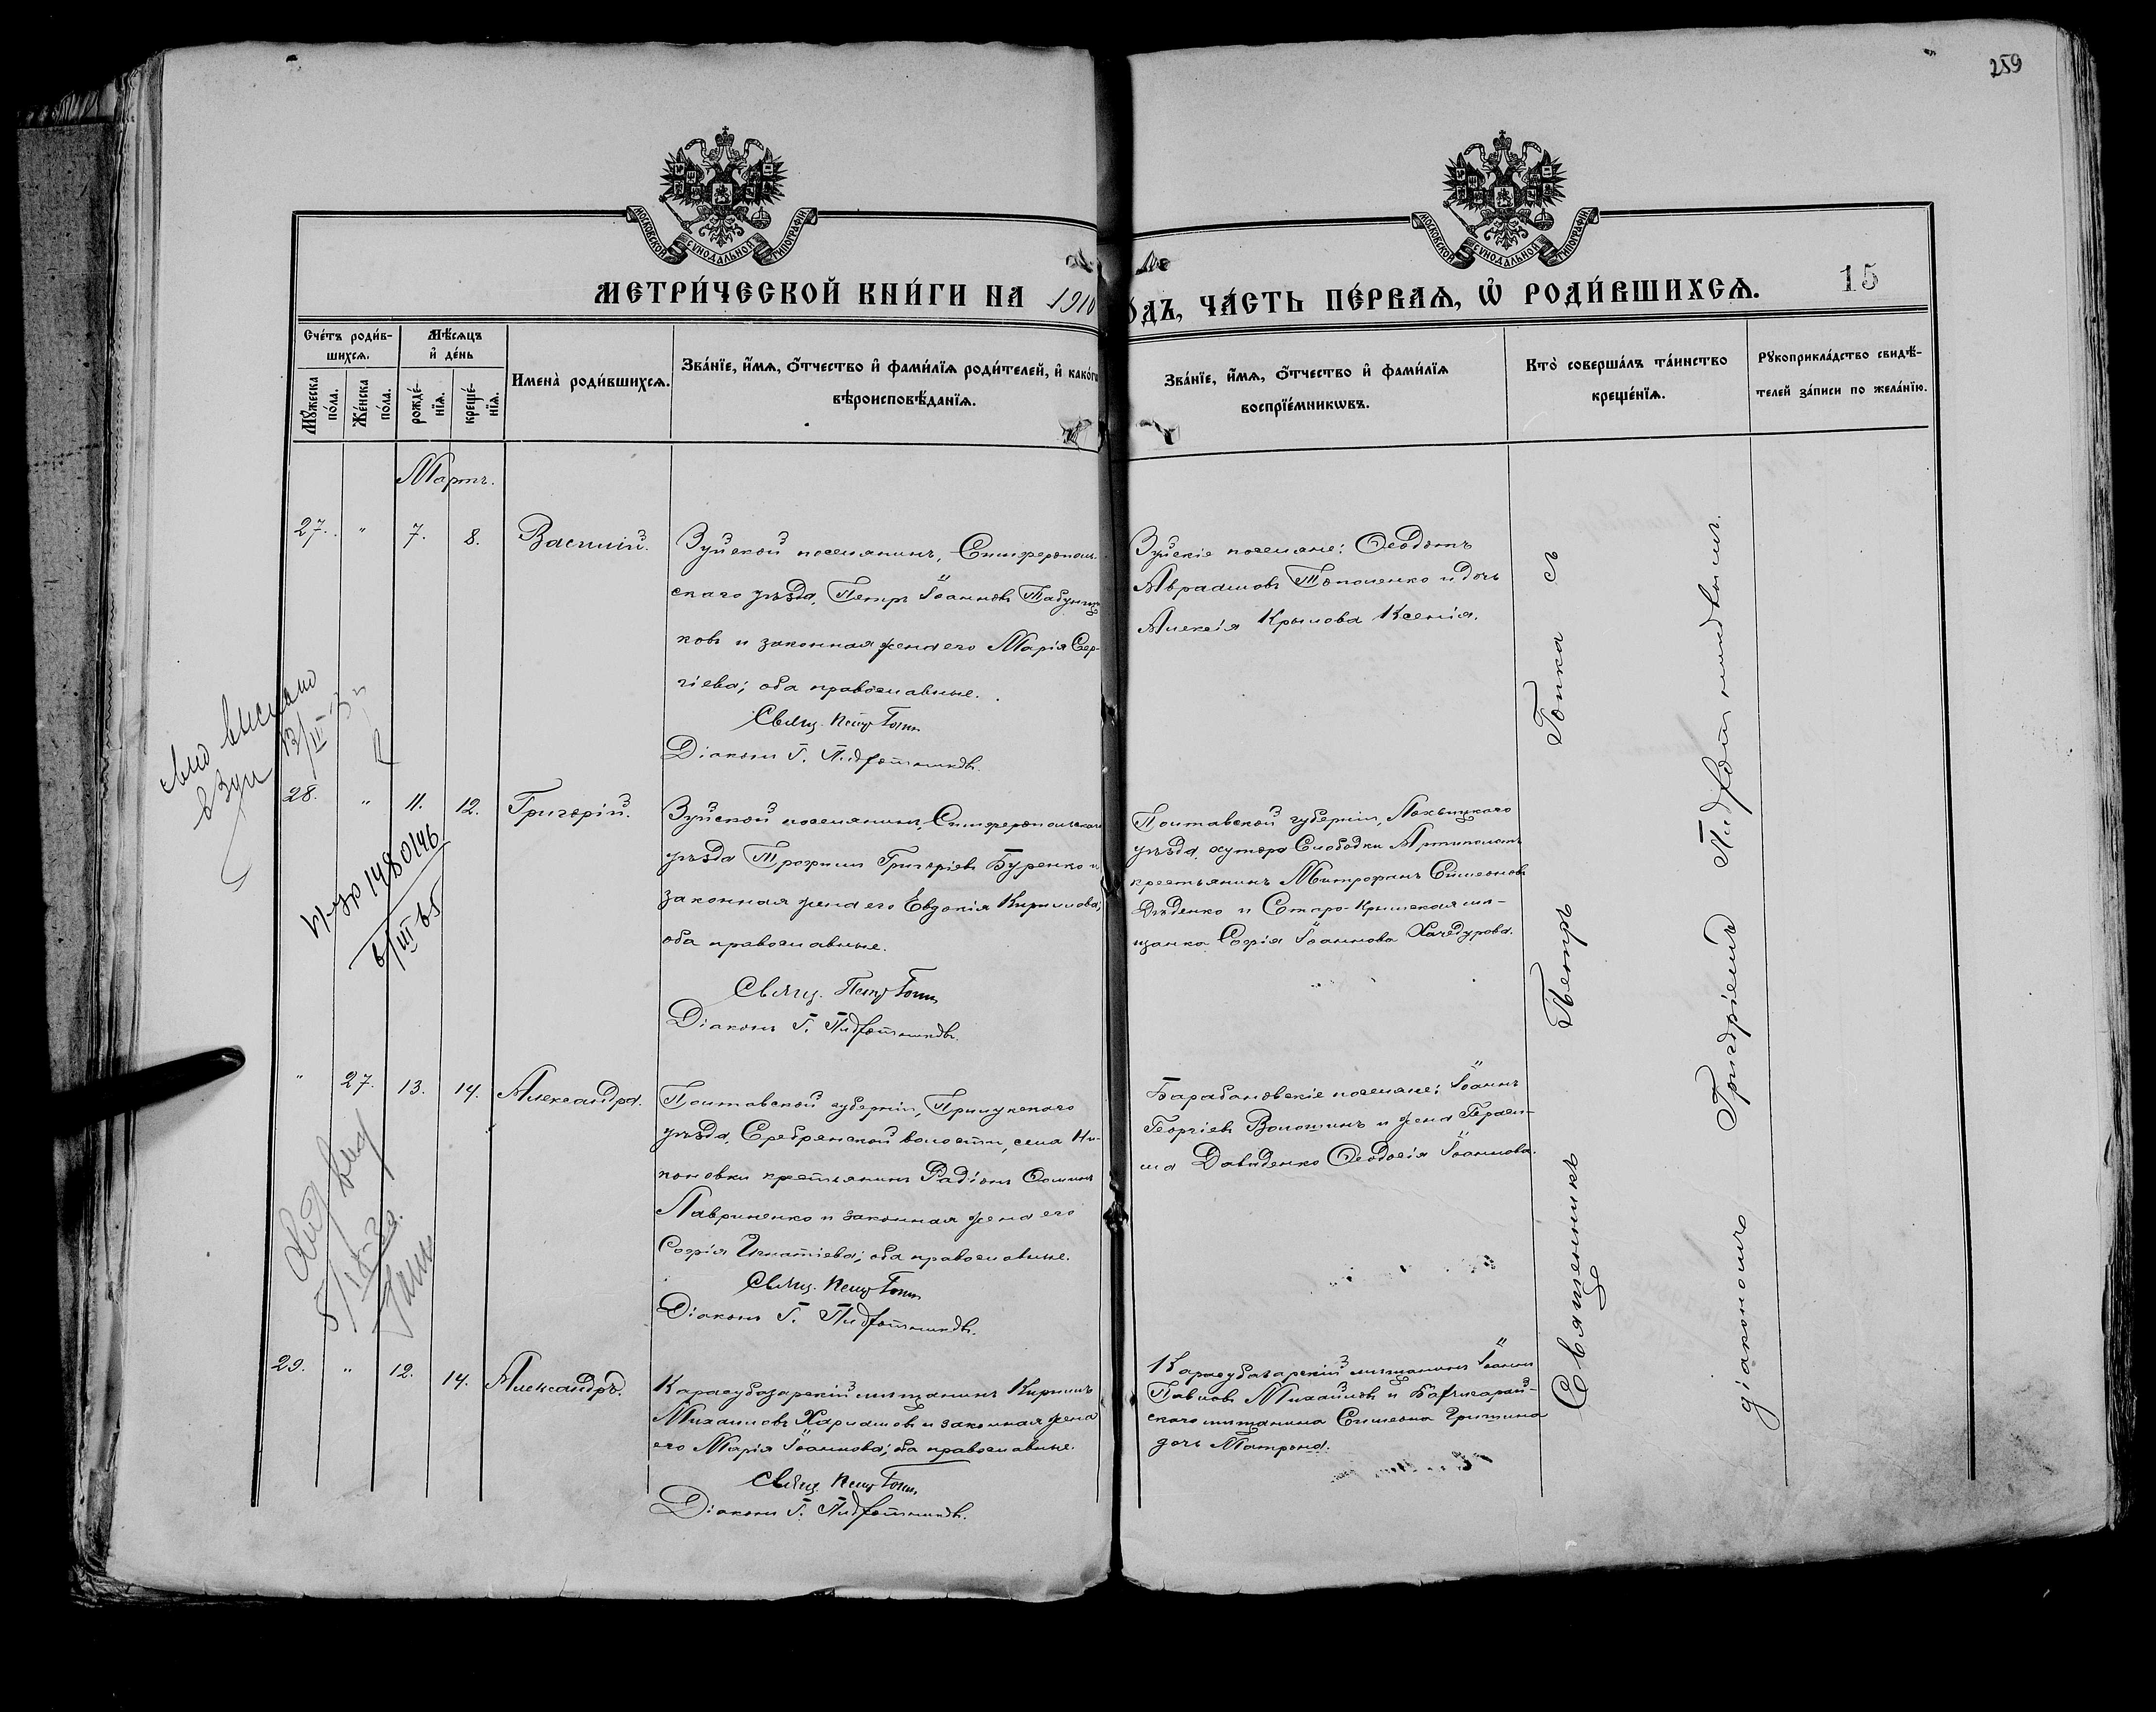 259
МОСКОВСКОЙ СѴНОДАЛЬНОЙ ТИПОГРАФІИ
МОСКОВСКОЙ СѴНОДАЛЬНОЙ ТИПОГРАФІИ
МЕТРИ́ЧЕСКОЙ КНИ́ГИ НА 1910
ОДЪ, ЧА́СТЬ ПЕ́РВАѦ, Ѡ҆ РОДИ́ВШИХСѦ.
15
Сче́тъ роди́в-
шихсѧ.
Мꙋ́жеска
по́ла.
Же́нска
по́ла.
Мѣ́сѧцъ
и҆ де́нь
рожде́-
нїѧ.
креще́-
нїѧ.
Имена̀ роди́вшихсѧ.
Зва́нїе, и҆́мѧ, ѻ҆́тчество и҆ фами́лїѧ роди́телей, и҆ како́гѡ
вѣроисповѣ́данїѧ.
Зва́нїе, и҆́мѧ, ѻ҆́тчество и҆ фами́лїѧ
воспрїе́мникѡвъ.
Кто̀ соверша́лъ та́инство
креще́нїѧ.
Рꙋкоприкла́дство свидѣ́-
телей за́писи по жела́нїю.
Мартъ.
27. " 7. 8. Василій.
Зуйской поселянинъ, Симферополь-
скаго уѣзда, Петръ Іоанновъ Табунщи-
ковъ и законная жена его Марія Сер-
гіева; оба православные.
Свящ. Петр Гопка
Діаконъ Г.
Зуйскіе поселяне: Ѳеодотъ
Аврамовъ Тополенко и дочь
Алексія Крылова Ксенія.
28. " 11. 12. Григорій.
Зуйской поселянинъ, Симферопольскаго
уѣзда Трофимъ Григоріевъ Буренко и
законная жена его Евдокія Кириллова;
оба православные.
Свящ. Петр Гопка
Діаконъ Г.
Полтавской губерніи, Лохвицкаго
уѣзда, хутора Слободки
крестьянинъ Митрофанъ Симеоновъ
Дѣденко и Старо-Крымская мѣ-
щанка Софія Іоаннова Хачедурова.
" 27. 13. 14. Александра.
Полтавской губерніи, Прилукскаго
уѣзда, Сребрянской волости, села Ни-
коновки крестьянинъ Радіонъ
Лавриненко и законная жена его
Софія Игнатіева; оба православные.
Свящ. Петр Гопка
Діаконъ Г.
Барабановскіе поселяне: Іоаннъ
Георгіевъ Волошинъ и жена Гераси-
ма Давиденко Ѳеодосія Іоаннова.
29. " 12. 14. Александръ.
Карасубазарскій мѣщанинъ Кириллъ
Михаиловъ Харламовъ и законная жена
его Марія Іоаннова; оба православные.
Свящ. Петр Гопка
Діаконъ Г.
Карасубазарскій мѣщанинъ Іоаннъ
Павловъ Михайловъ и
скаго мѣщанина Симеона Гришина
дочь Матрона.
Священникъ Петръ Гопка съ
діакономъ Григоріемъ
1480146
6/III 65